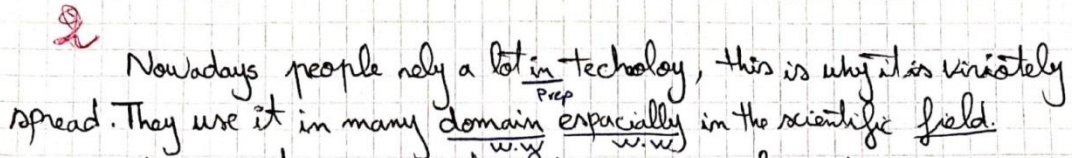 2
Nowadays people rely a lot in techoloy, this is why it is viriately
Prep
spread. They use it in many domain espacially in the scientific field.
w.w w.w